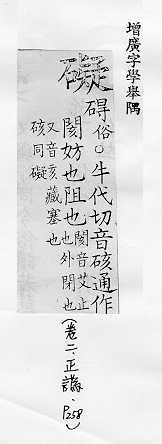 增廣字學舉隅
礙
碍俗○牛代切音硋通作
閡妨也阻也閡音艾止也外閉也
又音亥藏塞也
硋同礙
(卷二.正譌.P258)